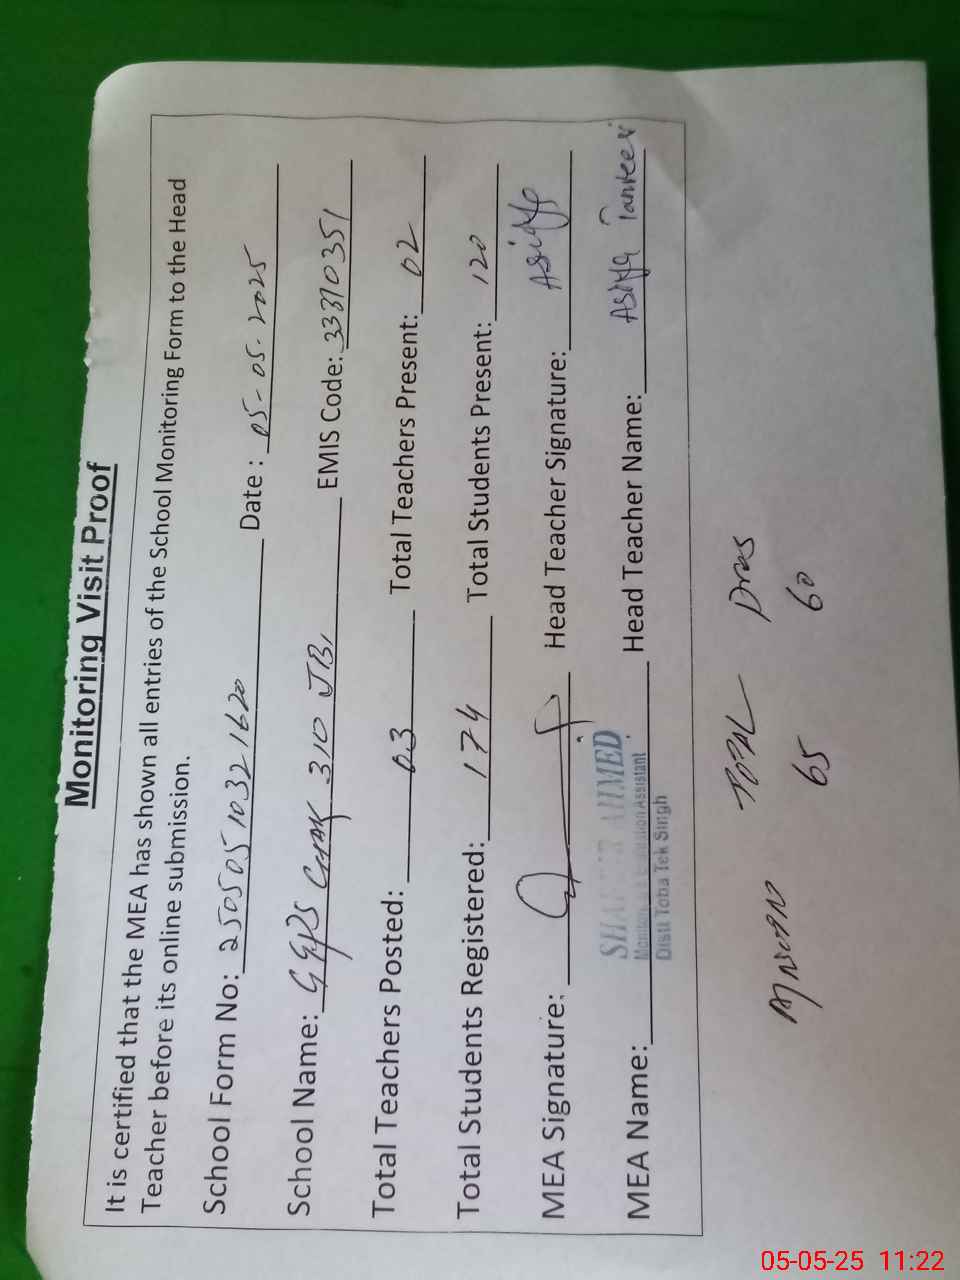 Monitoring Visit Proof
It is certified that the MEA has shown all entries of the School Monitoring Form to the Head
Teacher before its online submission.
School Form No: 250505 1032 1620 Date : 05-05-2025
School Name: GGPS 310 JB, EMIS Code: 33310351
Total Teachers Posted: 03 Total Teachers Present: 02
Total Students Registered: 174 Total Students Present: 120
MEA Signature: Head Teacher Signature:
MEA Name: AHMED Head Teacher Name: Asiya
Monitoring & Evaluation Assistant
Distt Toba Tek Singh
65 60
05-05-25 11:22